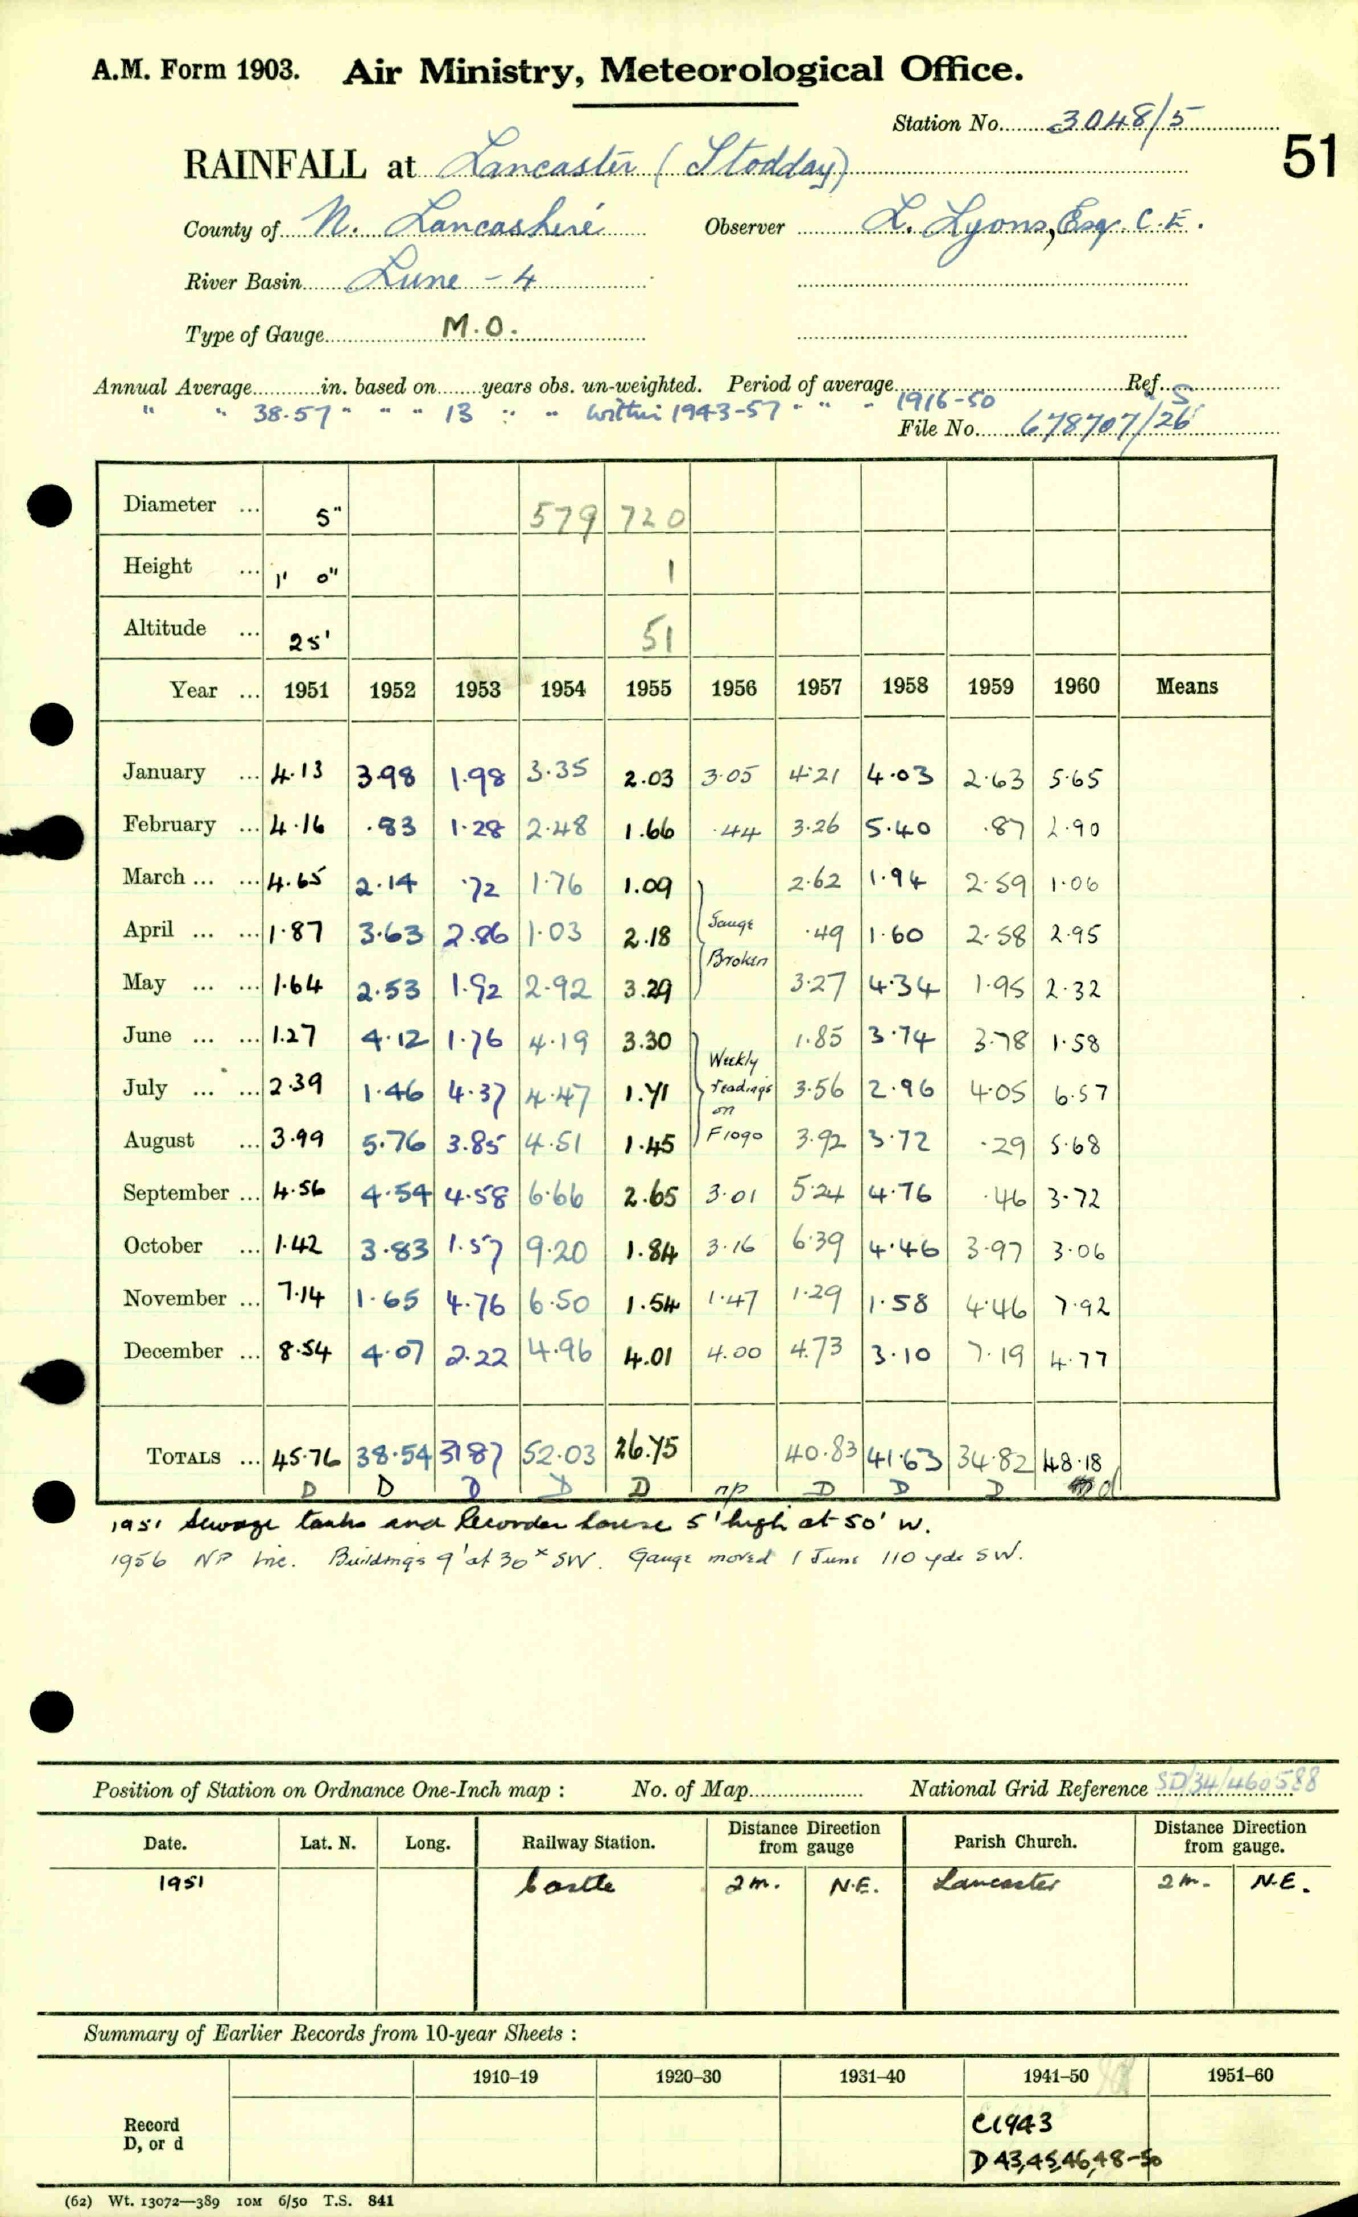 A.M. Form 1903. Air Ministry, Meteorological Office.
Station No. 3048/5
51
RAINFALL at Lancaster (Stodday)
County of N. Lancashire Observer L. Lyons, Esq. C.E.
River Basin Lune - 4
Type of Gauge M.O.
Annual Average in. based on years obs. un-weighted. Period of average Ref. S
" " 38.57 " " " 13 " " within 1943-57 " " " 1916-50
File No. 678707/26
Diameter ... 5" 579 720
Height ... 1' 0" 1
Altitude ... 25' 51
Year ... 1951 1952 1953 1954 1955 1956 1957 1958 1959 1960 Means
January ... 4.13 3.98 1.98 3.35 2.03 3.05 4.21 4.03 2.63 5.65
February ... 4.16 .83 1.28 2.48 1.66 .44 3.26 5.40 .87 2.90
March ... ... 4.65 2.14 .72 1.76 1.09 2.62 1.94 2.59 1.06
April ... ... 1.87 3.63 2.86 1.03 2.18 Gauge .49 1.60 2.58 2.95
Broken
May ... ... 1.64 2.53 1.92 2.92 3.29 3.27 4.34 1.95 2.32
June ... ... 1.27 4.12 1.76 4.19 3.30 Weekly 1.85 3.74 3.78 1.58
July ... ... 2.39 1.46 4.37 4.47 1.71 readings 3.56 2.96 4.05 6.57
on
August ... 3.99 5.76 3.85 4.51 1.45 F1090 3.92 3.72 .29 5.68
September ... 4.56 4.54 4.58 6.66 2.65 3.01 5.24 4.76 .46 3.72
October ... 1.42 3.83 1.57 9.20 1.84 3.16 6.39 4.46 3.97 3.06
November ... 7.14 1.65 4.76 6.50 1.54 1.47 1.29 1.58 4.46 7.92
December ... 8.54 4.07 2.22 4.96 4.01 4.00 4.73 3.10 7.19 4.77
TOTALS ... 45.76 38.54 31.87 52.03 26.75 40.83 41.63 34.82 48.18
D D D D D np D D D d
1951 Sewage tanks and Recorder house 5' high at 50' W.
1956 NP Inc. Buildings 9' at 30x SW. Gauge moved 1 June 110 yds SW.
Position of Station on Ordnance One-Inch map : No. of Map National Grid Reference SD/34/460588
Date. Lat. N. Long. Railway Station. Distance from Direction gauge Parish Church. Distance from Direction gauge.
1951 Castle 2m. N.E. Lancaster 2m. N.E.
Summary of Earlier Records from 10-year Sheets :
1910–19 1920–30 1931–40 1941–50 1951–60
Record C1943
D, or d D 43,45,46,48-50
(62) Wt. 13072—389 10M 6/50 T.S. 841